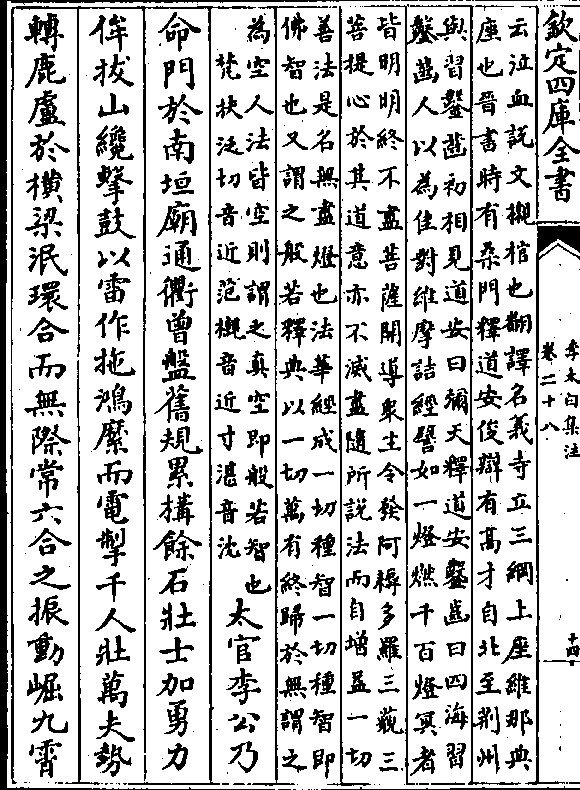 欽定四庫全書
李太白集注
卷二十八
十四
云泣血說文櫬棺也翻譯名義寺立三綱上座維那典
座也晉書時有桑門釋道安俊辯有高才自北至荆州
與習鑿齒初相見道安曰彌天釋道安鑿齒曰四海習
鑿齒人以為佳對維摩詰經譬如一燈燃千百燈冥者
皆明明終不盡菩薩開導衆生令發阿耨多羅三藐三
菩提心於其道意亦不滅盡隨所說法而自增益一切
善法是名無盡燈也法華經成一切種智一切種智即
佛智也又謂之般若釋典以一切萬有終歸於無謂之
為空人法皆空則謂之真空即般若智也
梵扶泛切音近范櫬音近寸湛音沈
太官李公乃
命門於南垣廟通衢曾盤舊規累搆餘石壯士加勇力
侔拔山纔擊鼓以雷作拖鴻縻而電掣千人壯萬夫勢
轉鹿盧於横梁泯環合而無際常六合之振動崛九霄